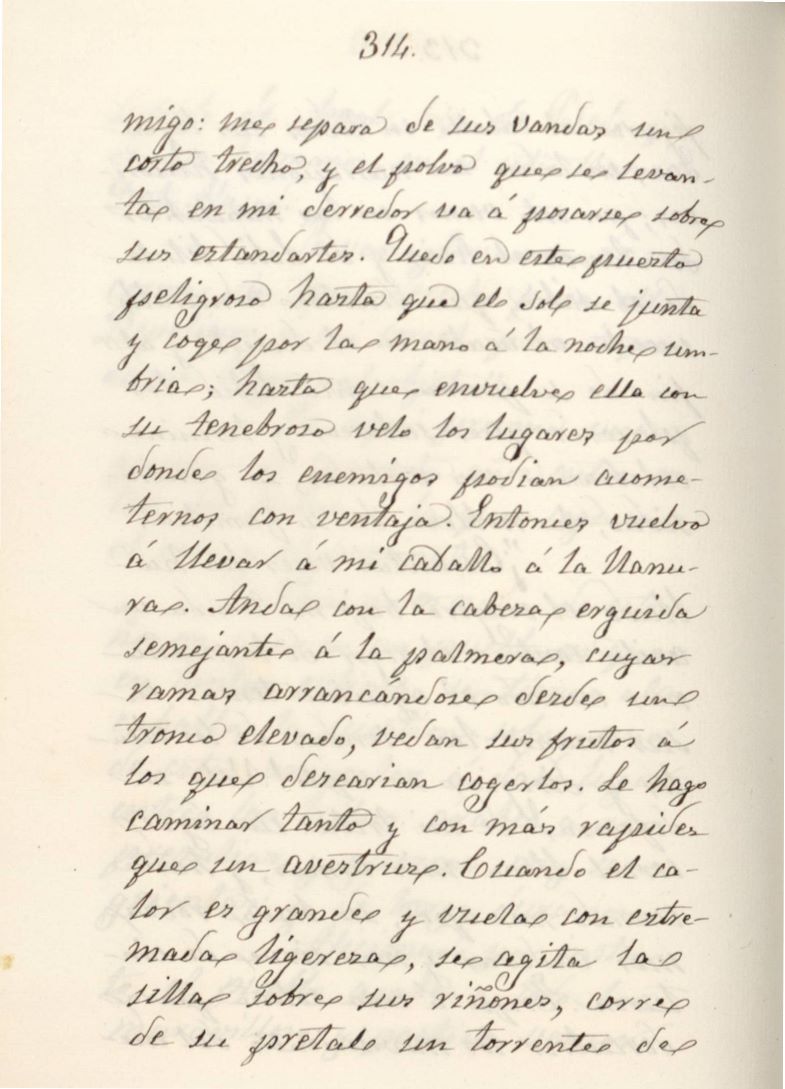 314.
migo: me separa de sus vandas un
corto trecho, y el polvo que se levan-
ta en mi derredor va á posarse sobre
sus estandartes. Quedo en este puesto
peligroso hasta que el sol se junta
y coge por la mano á la noche um-
bria; hasta que envuelve ella con
su tenebroso velo los lugares por
donde los enemigos podian acome-
ternos con ventaja. Entonces vuelvo
á llevar á mi caballo á la llanu-
ra. Anda con la cabeza erguida
semejante á la palmera, cuyas
ramas arrancándose desde un
tronco elevado, vedan sus frutos á
los que desearian cogerlos. Le hago
caminar tanto y con más rapidez
que un avestruz. Cuando el ca-
lor es grande y vuela con estre-
mada ligereza, se agita la
silla sobre sus riñones, corre
de su pretal un torrente de